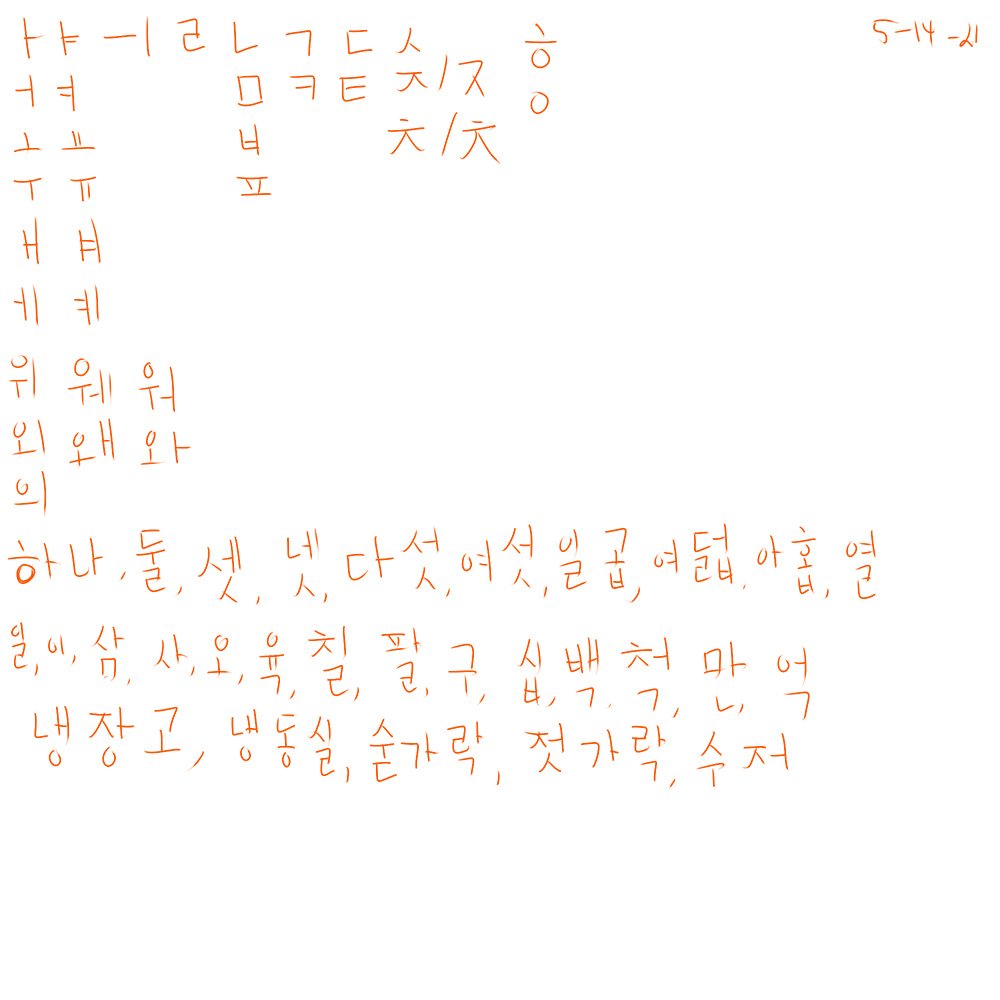 ㅏ ㅑ ㅡ ㅣ ㄹ ㄴ ㄱ ㄷ ㅅ ㅎ 5-14-21
ㅓ ㅕ ㅁ ㅋ ㅌ ㅈ/ㅈ ㅇ
ㅗ ㅛ ㅂ ㅊ/ㅊ
ㅜ ㅠ ㅍ
ㅐ ㅒ
ㅔ ㅖ
위 웨 워
외 왜 와
의
하나, 둘, 셋, 넷, 다섯, 여섯, 일곱, 여덟, 아홉, 열
일, 이, 삼, 사, 오, 육, 칠, 팔, 구, 십, 백, 척, 만, 억
냉장고, 냉동실, 숟가락, 젓가락, 수저